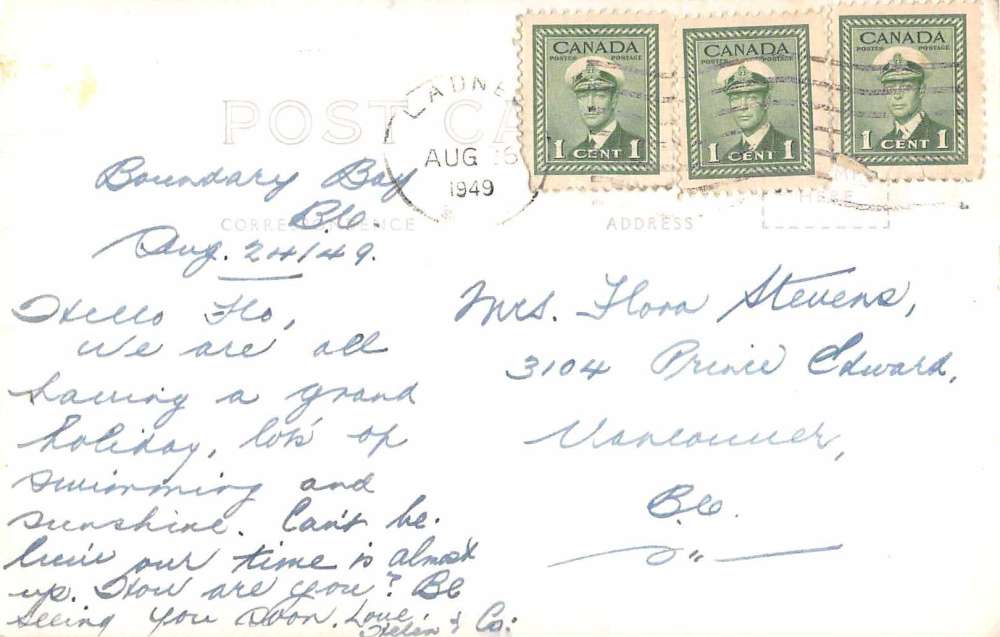 CANADA
POSTES POSTAGE
1 CENT 1
CANADA
POSTES POSTAGE
1 CENT 1
CANADA
POSTES POSTAGE
1 CENT 1
LADNE
AUG 1949
POST CA
CORRESPONDENCE
ADDRESS
HERE
Boundary Bay
B.C.
Aug. 24/49.
Hello Flo,
We are all
having a grand
holiday, lots of
swimming and
sunshine. Can't be.
lieve our time is almost
up. How are you? Be
seeing you soon. Love
Helen & Co:
Mrs. Flora Stevens,
3104 Prince Edward,
Vancouver,
B.C.